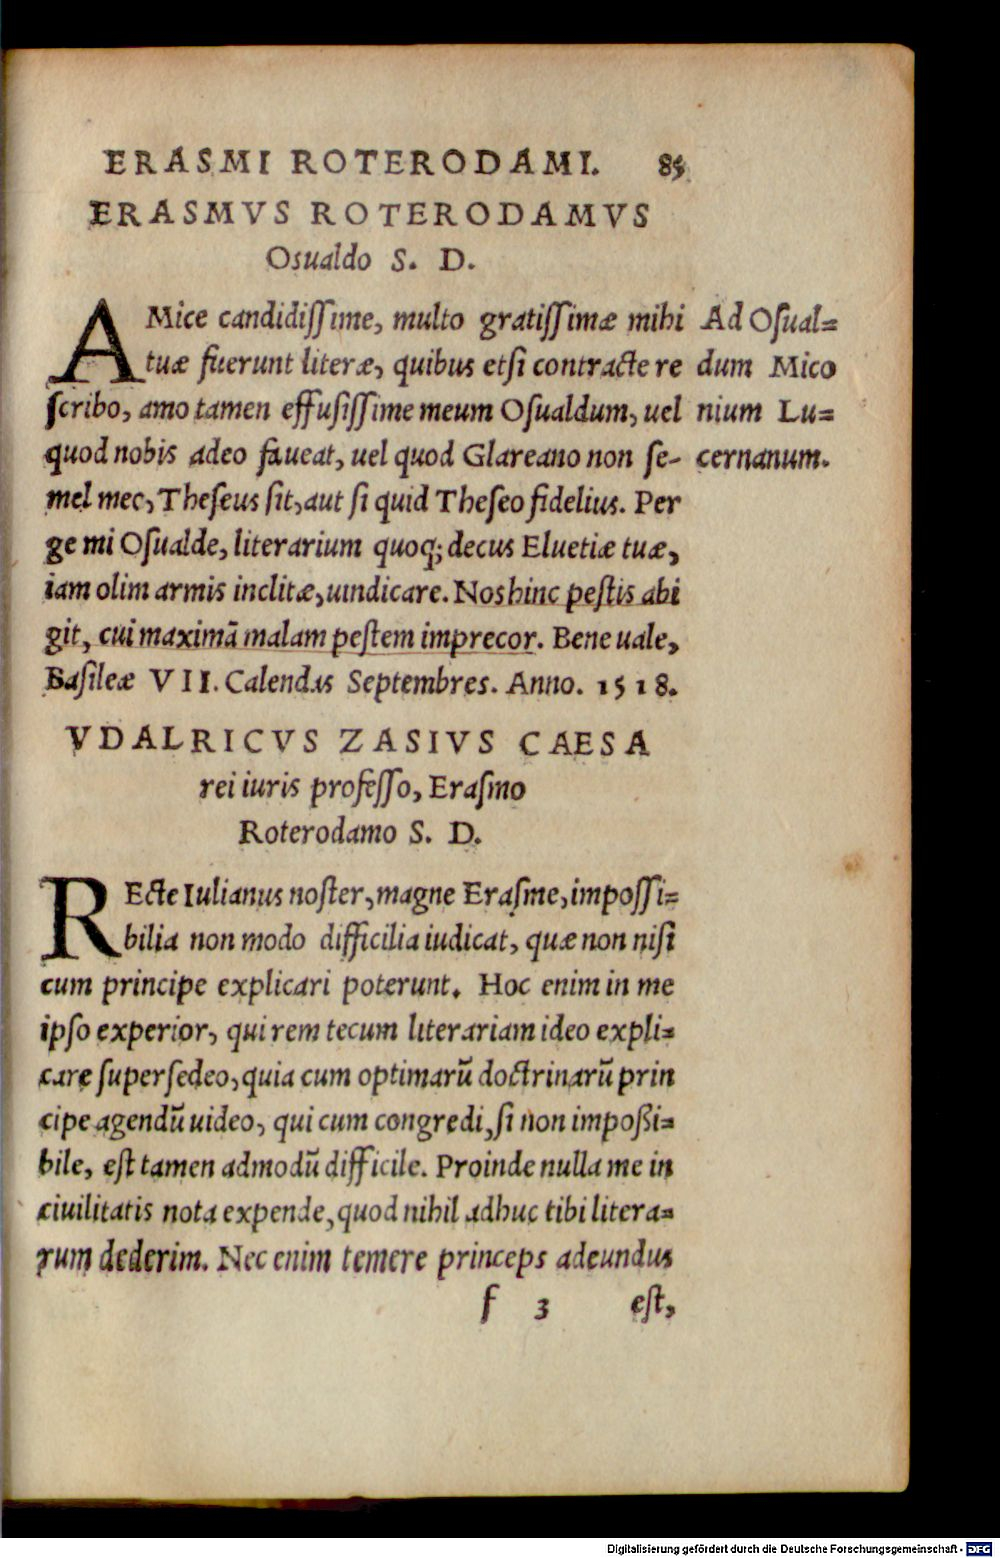 ERASMI ROTERODAMI. 85
ERASMVS ROTERODAMVS
Osualdo S. D.
AMice candidiſſime, multo gratiſſimæ mihi
tuæ fuerunt literæ, quibus etſi contracte re
ſcribo, amo tamen effuſiſſime meum Oſualdum, uel
quod nobis adeo faueat, uel quod Glareano non ſe-
mel mec, Theſeus ſit, aut ſi quid Theſeo fidelius. Per
ge mi Oſualde, literarium quoq; decus Eluetiæ tuæ,
iam olim armis inclitæ, uindicare. Nos hinc peſtis abi
git, cui maximā malam peſtem imprecor. Bene uale,
Baſileæ VII. Calendas Septembres. Anno. 1518.
Ad Oſual=
dum Mico
nium Lu=
cernanum.
VDALRICVS ZASIVS CAESA
rei iuris profeſſo, Eraſmo
Roterodamo S. D.
REcte Iulianus noſter, magne Eraſme, impoſſi=
bilia non modo difficilia iudicat, quæ non niſi
cum principe explicari poterunt. Hoc enim in me
ipſo experior, qui rem tecum literariam ideo expli=
care ſuperſedeo, quia cum optimarū doctrinarū prin
cipe agendū uideo, qui cum congredi, ſi non impoßi=
bile, eſt tamen admodū difficile. Proinde nulla me in
ciuilitatis nota expende, quod nihil adhuc tibi litera=
rum dederim. Nec enim temere princeps adeundus
f 3 eſt,
Digitalisierung gefördert durch die Deutsche Forschungsgemeinschaft - DFG